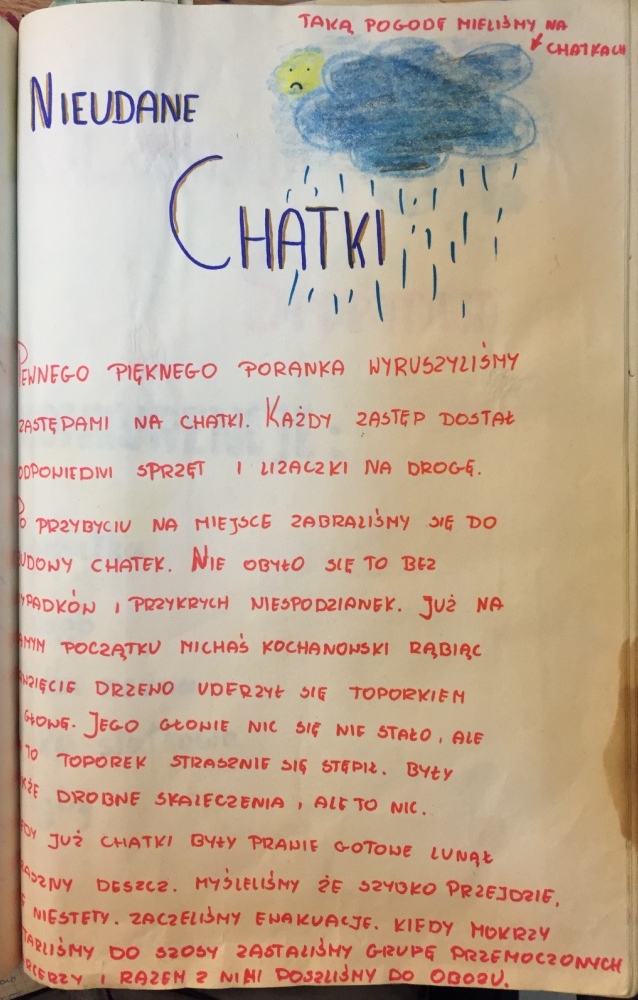 TAKĄ POGODĘ MIELIŚMY NA
CHATKACH
NIEUDANE
CHATKI
PEWNEGO PIĘKNEGO PORANKA WYRUSZYLIŚMY
ZASTĘPAMI NA CHATKI. KAŻDY ZASTĘP DOSTAŁ
ODPOWIEDNI SPRZĘT I LIZACZKI NA DROGĘ.
PO PRZYBYCIU NA MIEJSCE ZABRALIŚMY SIĘ DO
BUDOWY CHATEK. NIE OBYŁO SIĘ TO BEZ
WYPADKÓW I PRZYKRYCH NIESPODZIANEK. JUŻ NA
SAMYM POCZĄTKU MICHAŚ KOCHANOWSKI RĄBIĄC
ZAWZIĘCIE DRZEWO UDERZYŁ SIĘ TOPORKIEM
GŁOWĘ. JEGO GŁOWIE NIC SIĘ NIE STAŁO, ALE
TO TOPOREK STRASZNIE SIĘ STĘPIŁ. BYŁY
TAKŻE DROBNE SKALECZENIA, ALE TO NIC.
KIEDY JUŻ CHATKI BYŁY PRAWIE GOTOWE LUNĄŁ
STRASZNY DESZCZ. MYŚLELIŚMY ŻE SZYBKO PRZEJDZIE,
NIESTETY. ZACZELIŚMY EWAKUACJE. KIEDY MOKRZY
DOTARLIŚMY DO SZOSY ZASTALIŚMY GRUPĘ PRZEMOCZONYCH
HARCERZY I RAZEM Z NIMI POSZLIŚMY DO OBOZU.